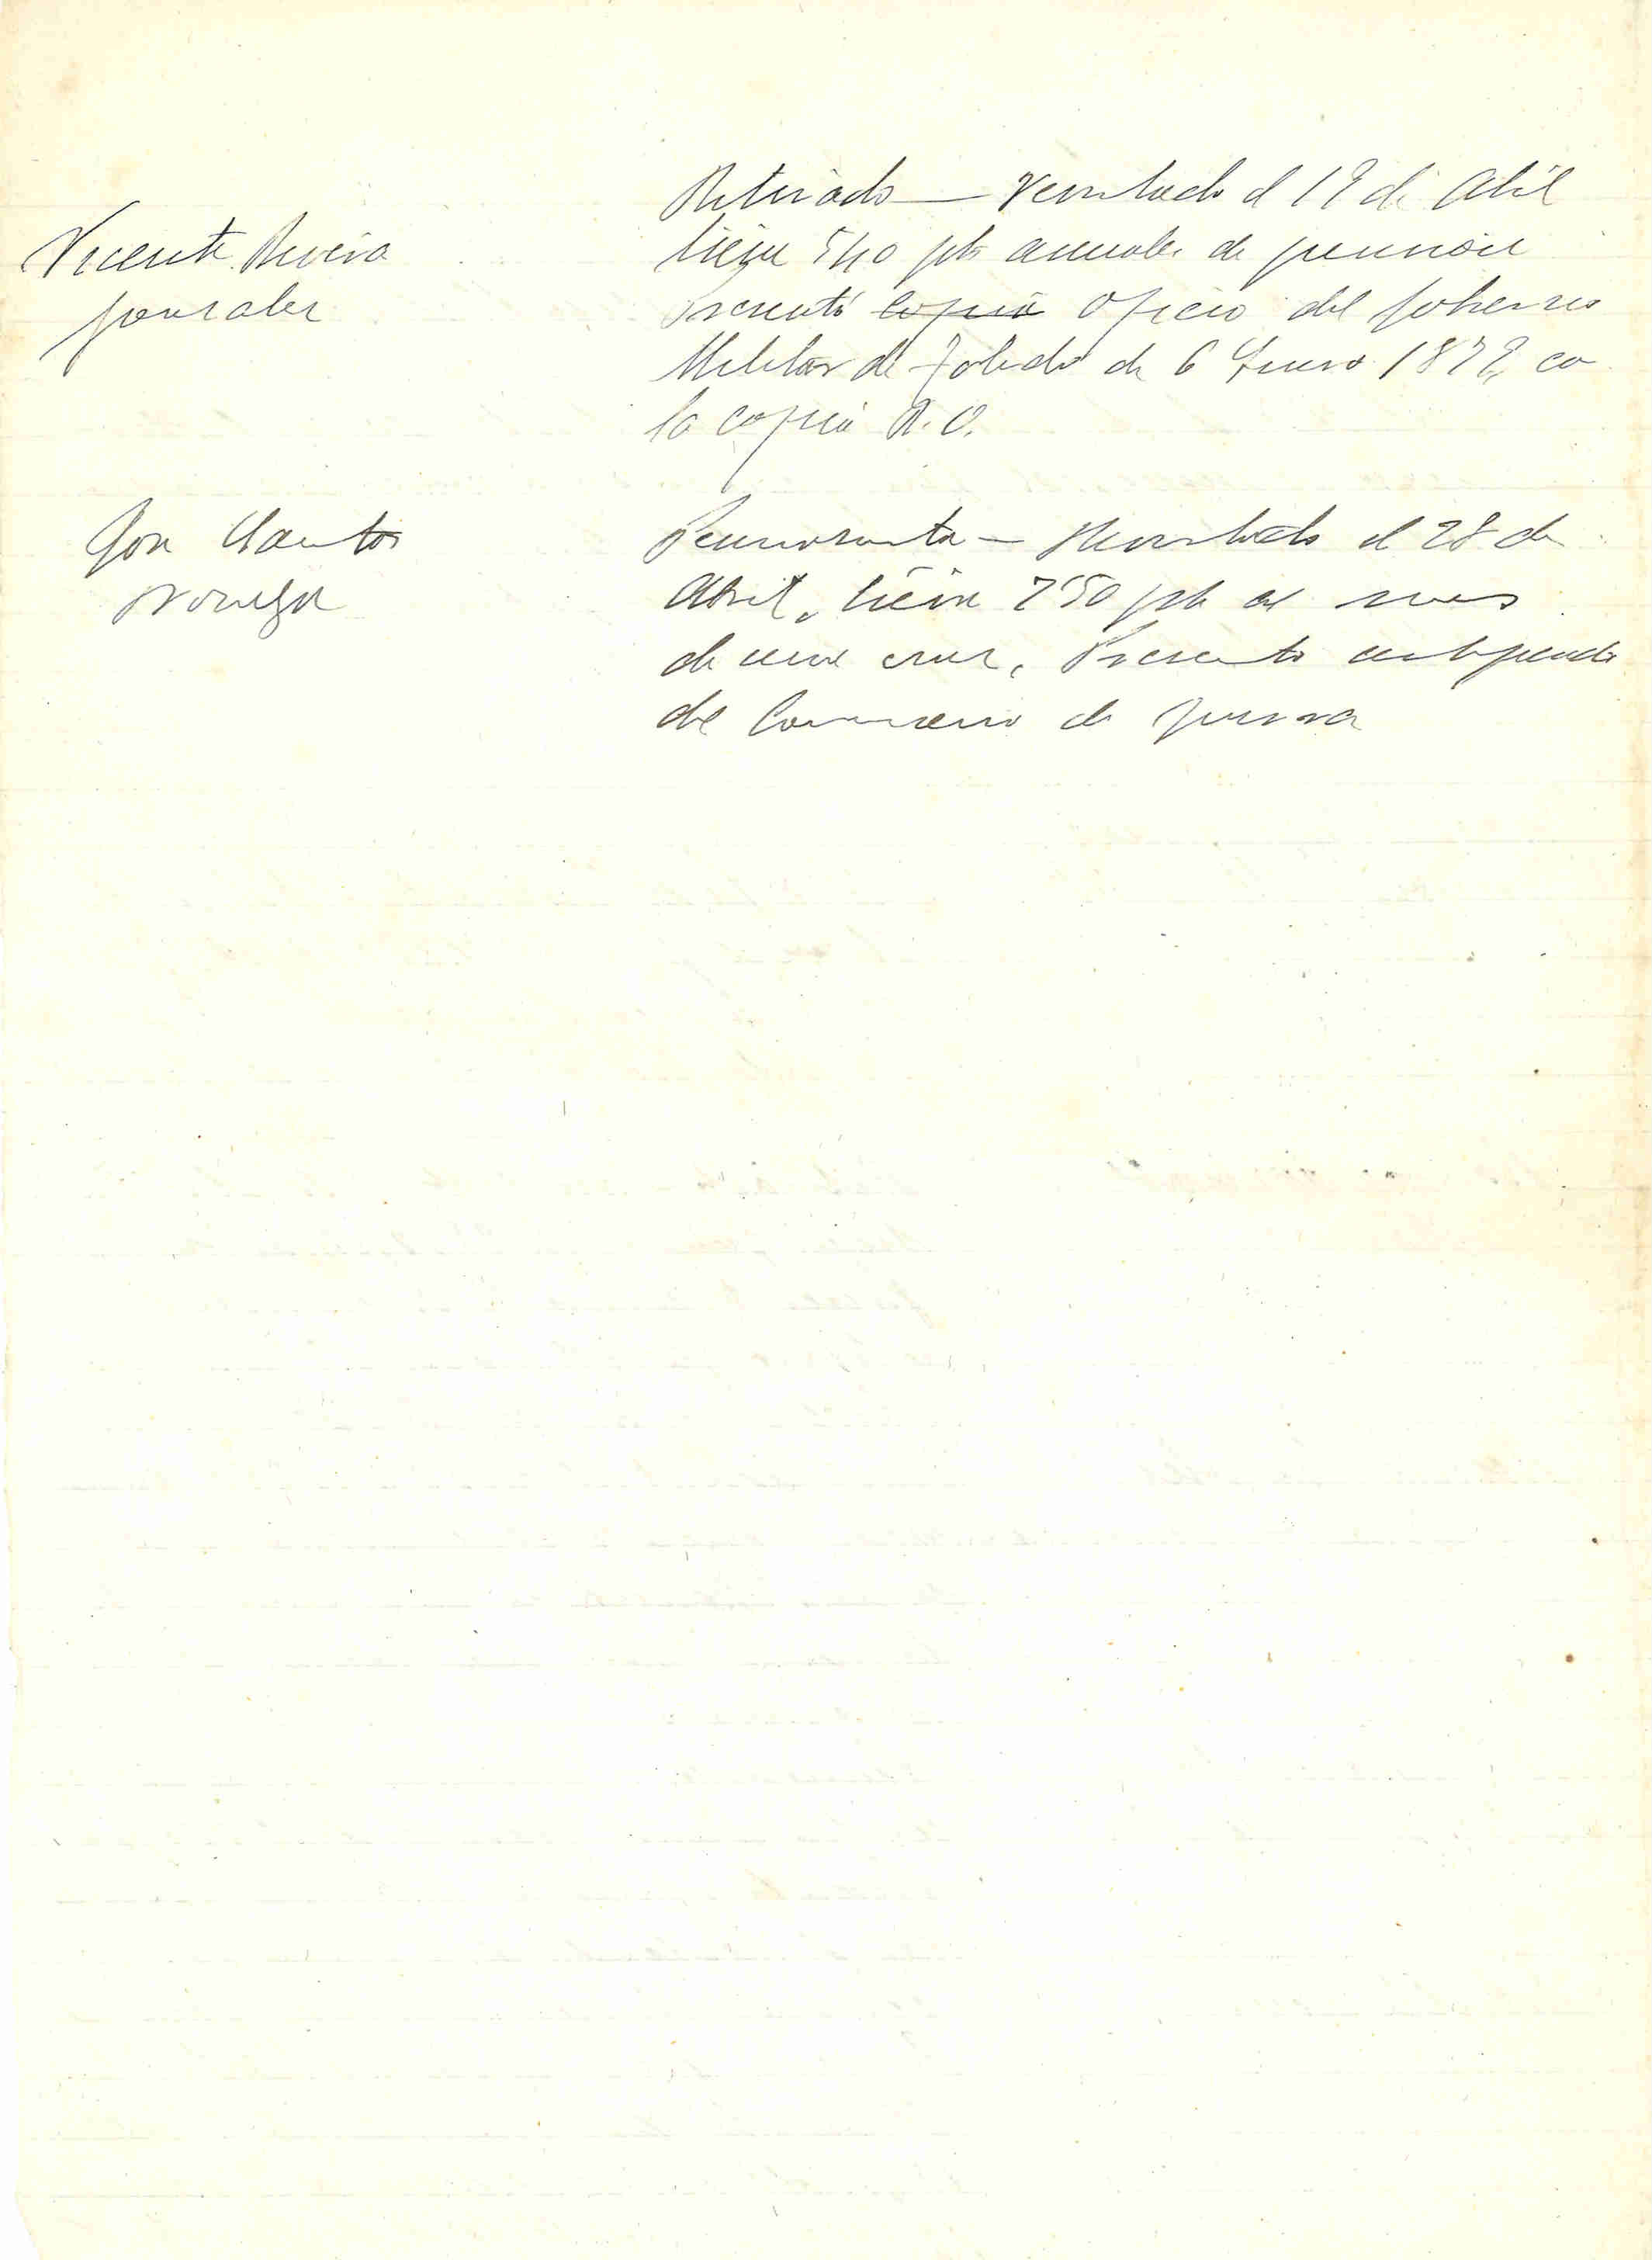 Vicente Rivera
Gonzalez
Retirado — Revistado el 19 de Abril
tiene 540 pts anuales de pension
Presentó copia oficio del Gobierno
Militar de Toledo de 6 Enero 1879, co
la copia R.O.
Jose Santos
Noriega
Pensionista — Revistado el 28 de
Abril, tiene 7'50 pts al mes
de una cruz, Presento
del Comisario de Guerra